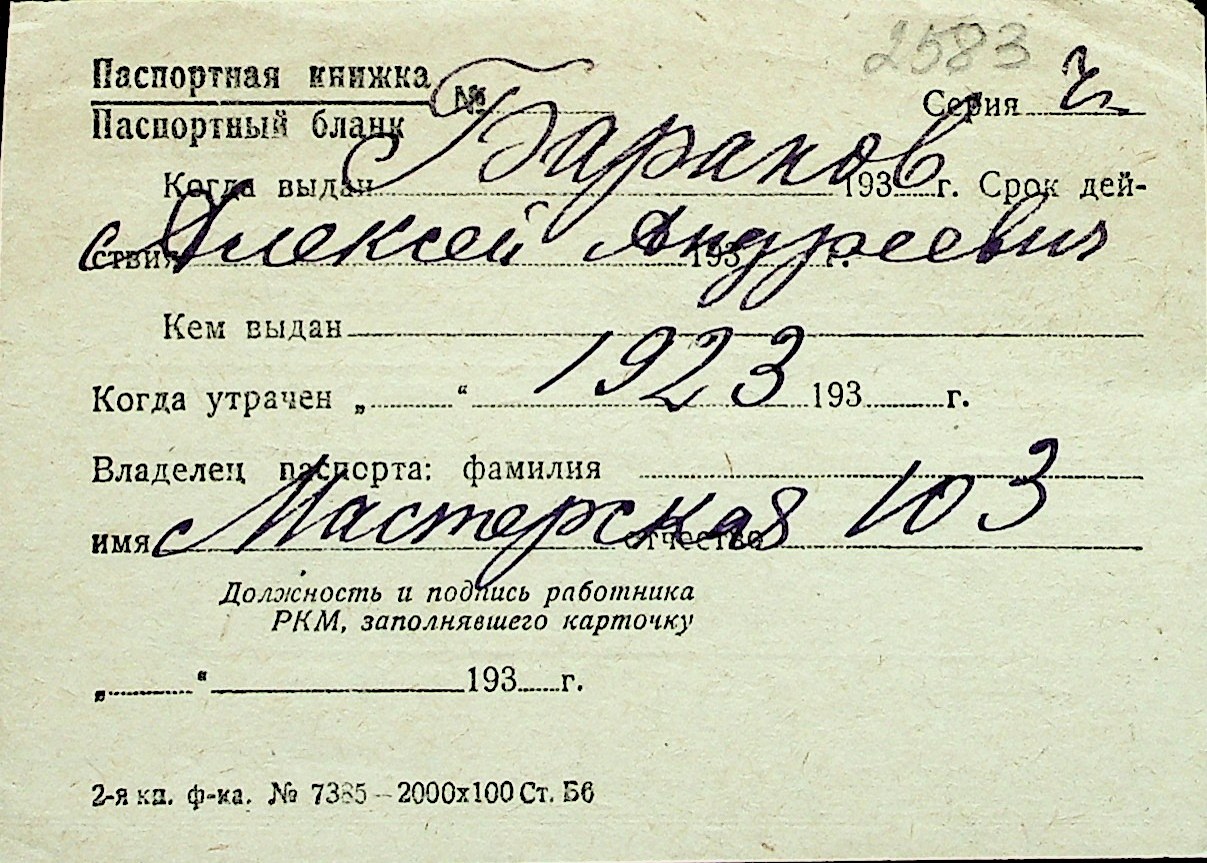 2583
Паспортная книжка № Серия
Паспортный бланк
Баранов
Когда выдан 193 г. Срок дей-
ствия 193 г.
Алексей Андреевич
Кем выдан
1923
Когда утрачен „ “ 193 г.
Владелец паспорта: фамилия
Мастерская 103
имя отчество
Должность и подпись работника
РКМ, заполнявшего карточку
„ “ 193 г.
2-я кн. ф-ка. № 7385—2000х100 Ст. Б6